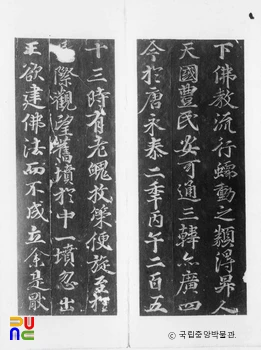 下佛教流行蠕動之類得昇人
天國豊民安可通三韓亦廣四
今於唐永泰二年丙午二百五
十三時有老魄放策便旋至於
際觀望舊墳於中一墳忽出
王欲建佛法而不成立余是厭
© 국립중앙박물관